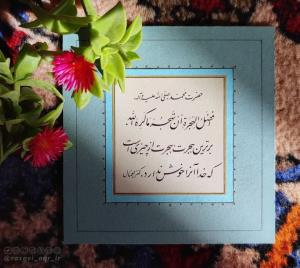 حضرت محمد صلی الله علیه وآله
فضل الهجرة أن تهجر ما كره الله
برترین هجرت هجرت از چیزی است
که خدا آنرا خوش ندارد، کنزالعمال
@rasgei_nqr_ir